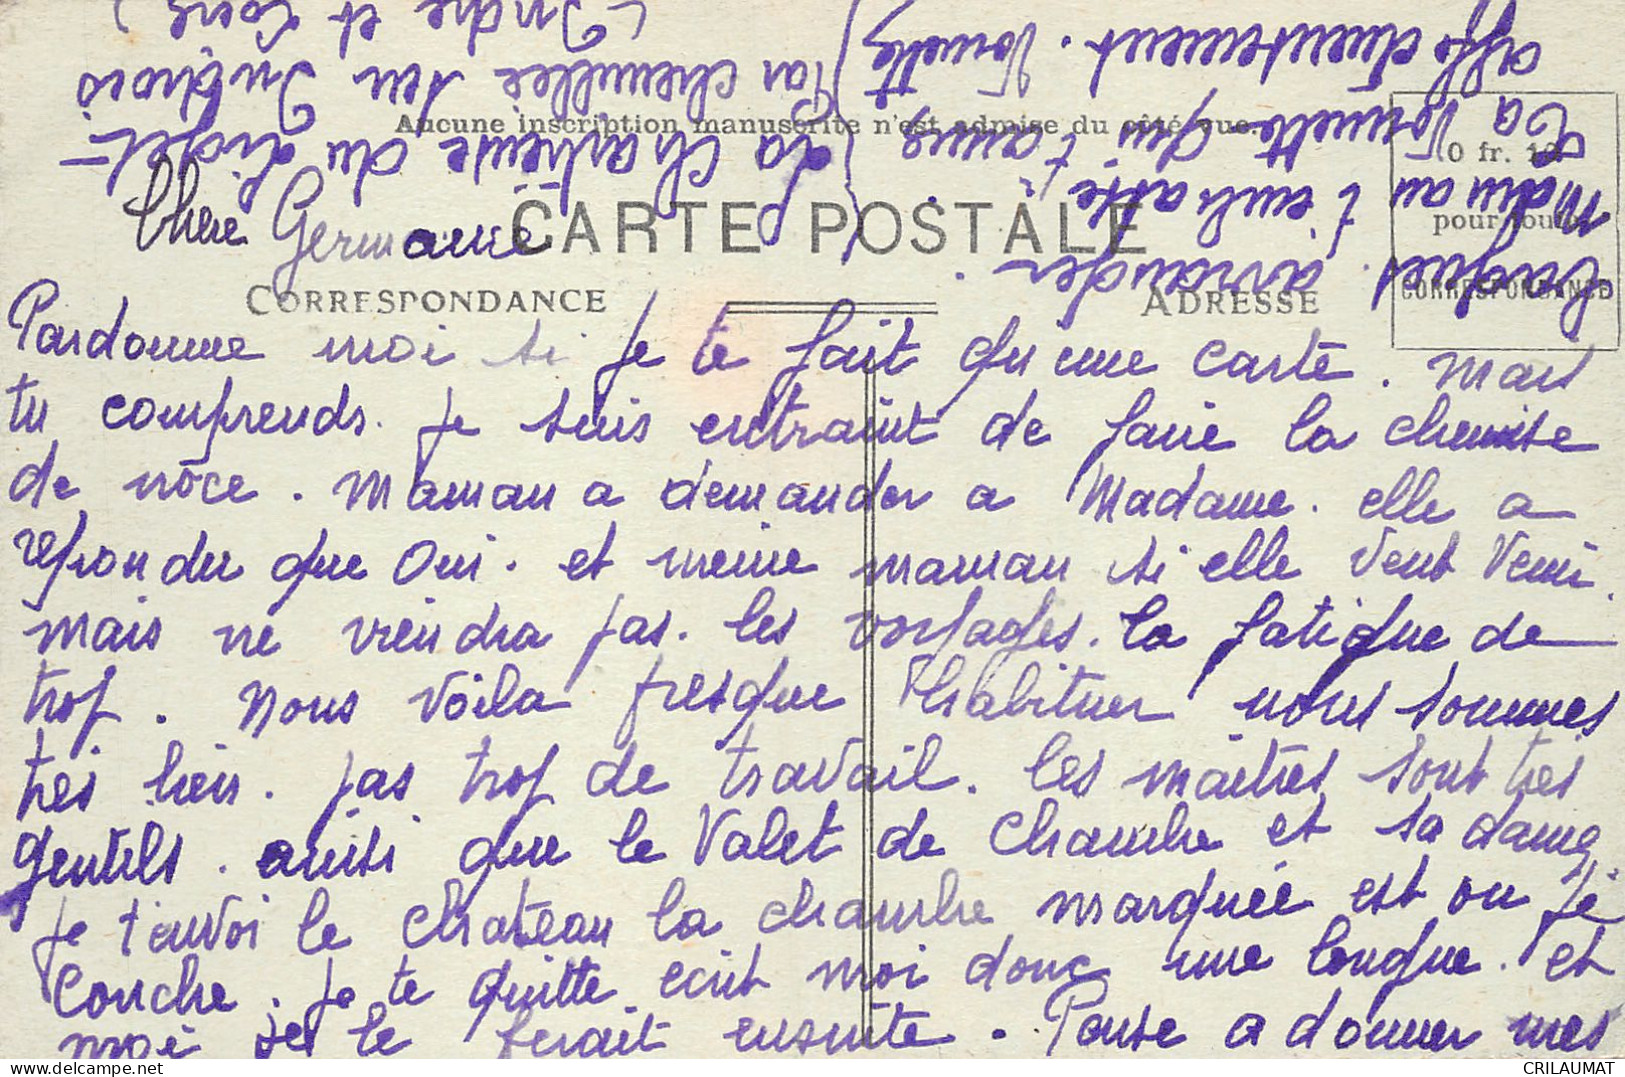 Aucune inscription manuscrite n'est admise du côté vue.
CARTE POSTALE
CORRESPONDANCE
ADRESSE
0 fr. 10
pour toute
CORRESPONDANCE
Chere Germaine
Pardonne moi si je te fait qu'une carte. Mais
tu comprends. je suis entraint de faire la chemise
de nôce. Maman a demander a Madame. elle a
repondu que Oui. et meme maman si elle veut venir.
mais ne viendra pas. les voyages. la fatigue de
trop. Nous voila presque habituer nous sommes
tres bien. pas trop de travail. les maitres sont tres
gentils. ainsi que le Valet de Chambre et sa dame.
je t'envoi le Chateau la chambre marquée est ou je
Couche. je te quitte ecrit moi donc une longue. et
moi je le ferait ensuite. Pense a donner mes
bagues. a
Maman t'embrasse
Ta Nonette qui t'aime
affectueusement. Nonette
La Chartreuse du Liget-
Par Chemillé sur Indrois
(Indre et Loire)
CRILAUMAT